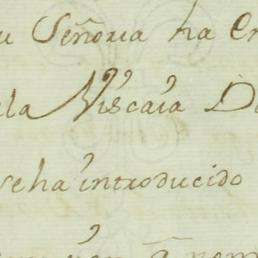 u Señoria ha en
la Viscaia D
seha introducido